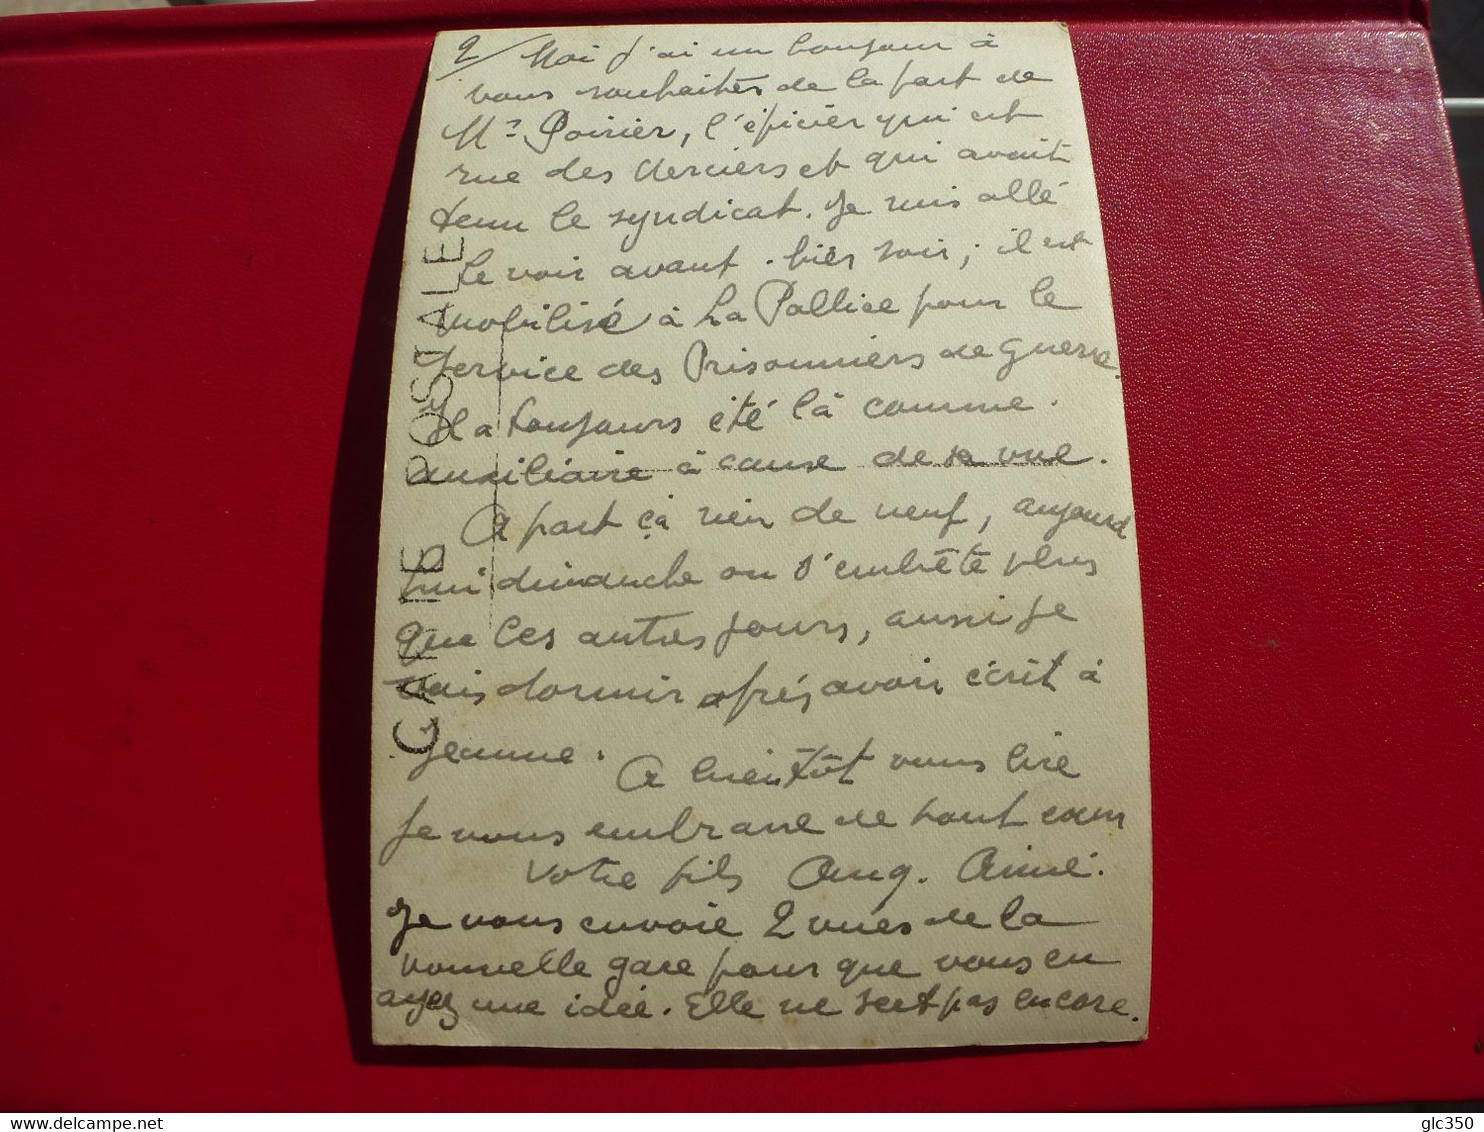 2/ Moi j'ai un bonjour à
vous souhaiter de la part de
Mr Poirier, l'épicier qui est
rue des Merciers et qui avait
tenu le syndicat. Je suis allé
le voir avant. hier soir; il est
mobilisé à La Pallice pour le
service des Prisonniers de guerre.
Il a toujours été là comme.
auxiliaire à cause de sa vue.
A part ça rien de neuf, aujourd
hui dimanche on s'embête plus
que les autres jours, aussi je
vais dormir après avoir écrit à
Jeanne. A bientôt vous lire
Je vous embrasse de tout cœur
Votre fils Aug. Aimé.
Je vous envoie 2 vues de la
nouvelle gare pour que vous en
ayez une idée. Elle ne sert pas encore.
CARTE POSTALE
glc350